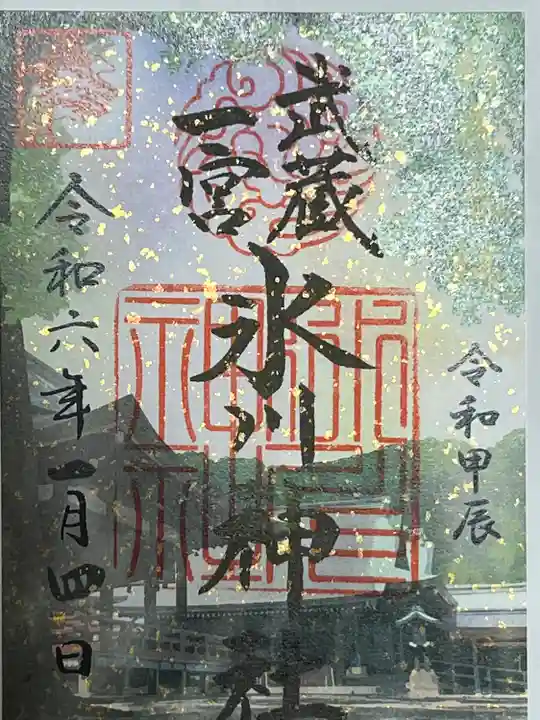 令和甲辰
武蔵
一宮
氷川神社
令和六年一月四日